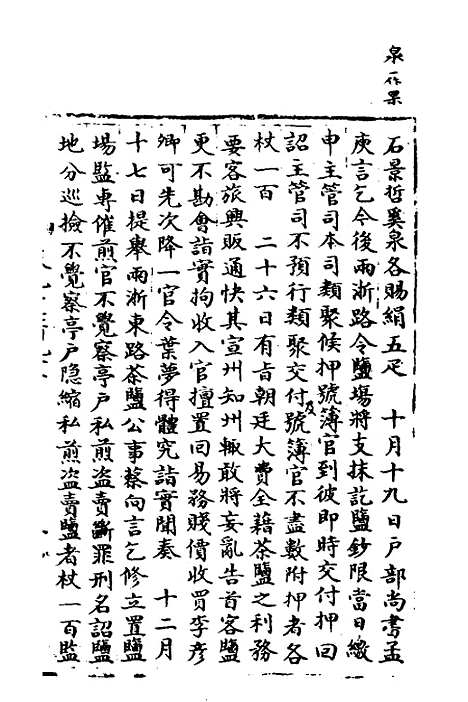 泉一作杲
石景哲奚泉各賜絹五疋　十月十九日戶部尚書孟
庾言乞今後兩浙路令鹽場將支抹訖鹽鈔限當日繳
申主管司本司類聚候押號簿官到彼即時交付押回
詔主管司不預行類聚交付及號簿官不盡數附押者各
杖一百　二十六日有旨朝廷大費全藉茶鹽之利務
要客旅興販通快其宣州知州輙敢將妄亂告首客鹽
更不勘會詣實拘收入官擅置回易務賤價收買李彦
卿可先次降一官令葉夢得體究詣實聞奏　十二月
十七日提舉兩浙東路茶鹽公事蔡向言乞修立置鹽
場監専催煎官不覺察亭戶私煎盜賣斷罪刑名詔鹽
地分巡撿不覺察亭户隐縮私煎盜賣鹽者杖一百監